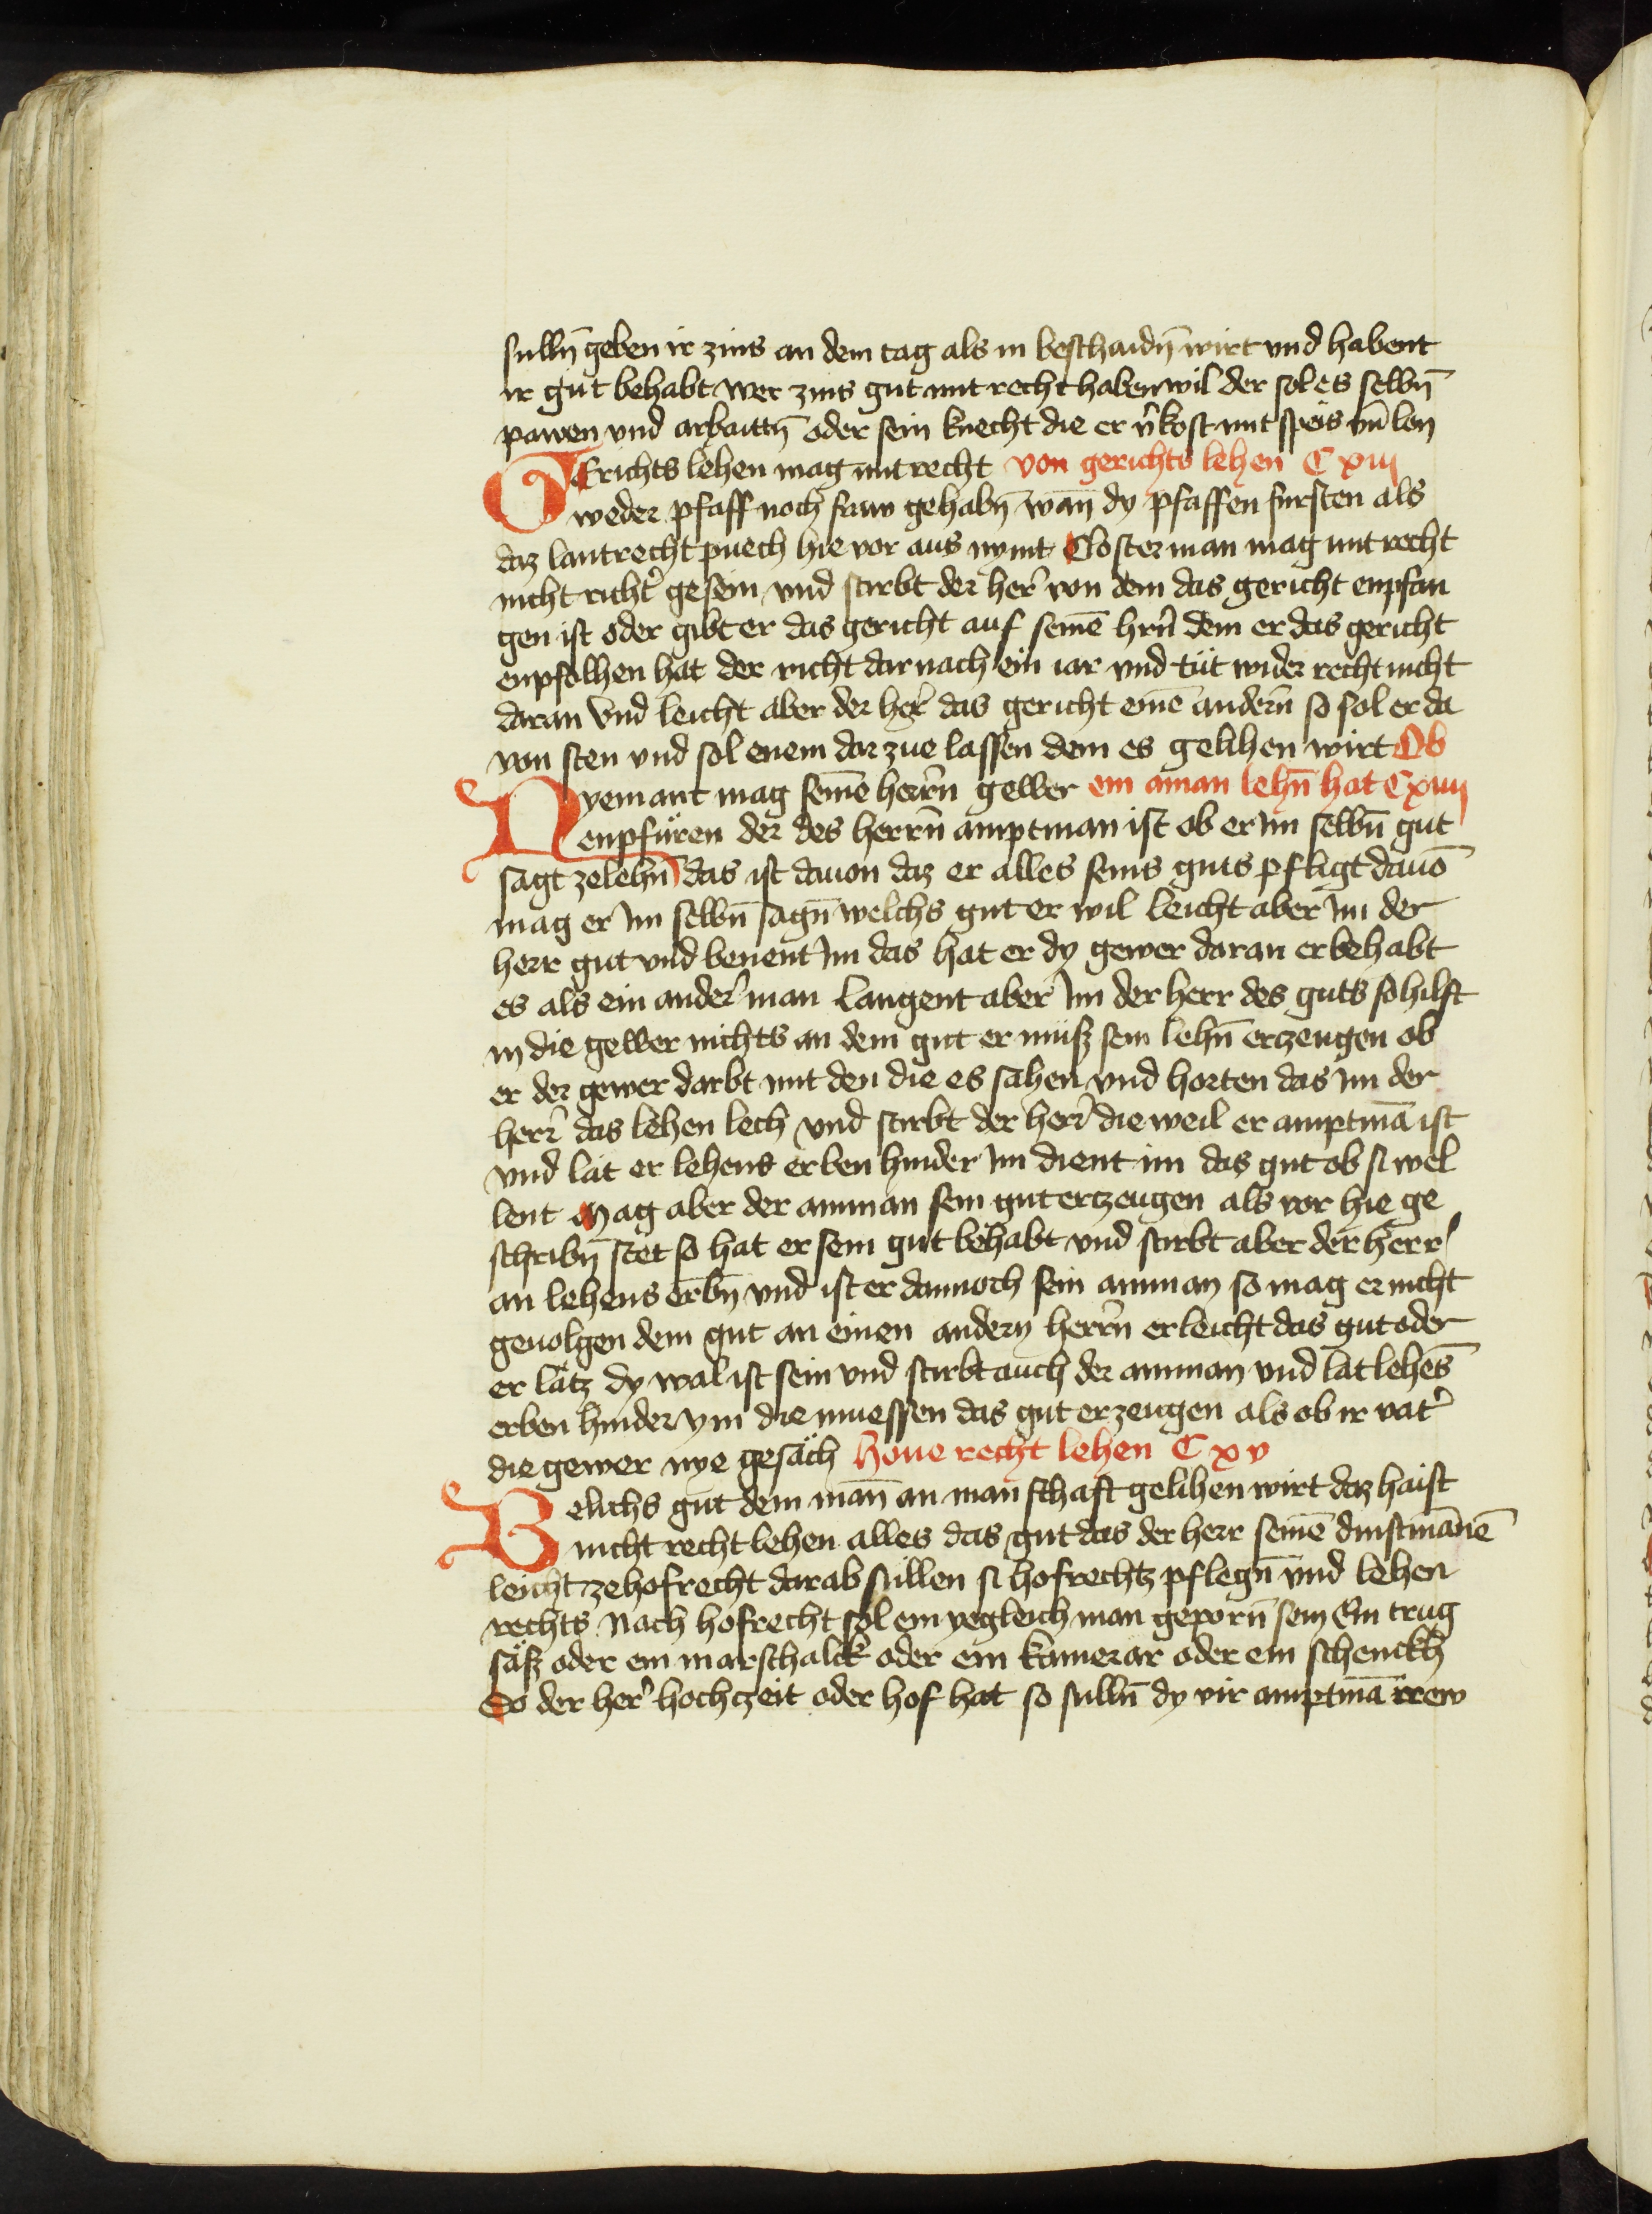 sulln̄ geben ir zins an dem tag als in beschaidn̄ wirt vnd habent
ir gut behabt wer zins gut mit recht haben wil der sol es selbn̄
pawen vnd arbaittn̄ oder sein knecht die er v̄kost mit speis vn̄ lon
Gerichts lehen mag mit recht von gerichts lehen C xiij
weder pfaff noch fraw gehabn̄ wan̄ dy pfaffen fursten als
daz lantrecht puech hie vor aus nymt Closter man mag mit recht
nicht richt͛ gesein vnd stirbt der her͛ von dem das gericht enpfan
gen ist oder gibt er das gericht auf seinē hrn̄ dem er das gericht
enpfolhen hat der richt dar nach ein iar vnd tut wider recht nicht
daran Vnd leicht aber der her͛ das gericht einē andern̄ so sol er da
von sten vnd sol enem dar zue lassen dem es gelihen wirt Ob
Nyemant mag seinē herrn̄ gewer ein am̄an lehn̄ hat C xiiij
enpfüren der des herrn̄ amptman ist ob er im selbn̄ gut
sagt ze lehn̄ das ist dauon daz er alles seins guts pfligt dauō
mag er im selbn̄ sagn̄ welchs gut er wil leicht aber im der
herr gut vnd benent im das hat er dy gewer daran er behabt
es als ein ander͛ man Laugent aber im der herr des guts so hilft
in die gewer nichts an dem gut er muß sein lehn̄ erzeugen ob
er der gewer darbt mit den die es sahen vnd horten das im der
herr͛ das lehen lech vnd stirbt der herr͛ die weil er amptmā ist
vnd lät er lehens erben hinder im dient im das gut ob si wel
lent Mag aber der amman sein gut ertzeugen als vor hie ge
schribn̄ stet so hat er sein gut behabt vnd stirbt aber der herr
an lehens erbn̄ vnd ist er dannoch sein amman so mag er nicht
geuolgen dem gut an einen andern herrn̄ er leicht das gut oder
er lätz dy wal ist sein vnd stirbt auch der amman vnd lat lehēs
erben hinder ym die muessen das gut erzeugen als ob ir vat͛
die gewer nye gesäch houe recht lehen C xv
Welichs gut dem man̄ an manschaft gelihen wirt daz haist
nicht recht lehen alles das gut das der herr seinē dinstman̄ē
leicht ze hofrecht darab sullen si hofrechtz pflegn̄ vnd lehen
rechts Nach hofrecht sol ein yegleich man geporn̄ sein Ein trug
säß oder ein marschalck oder ein kamerar oder ein schenckh
So der her͛ hochzeit oder hof hat so sulln̄ dy vir amptmā irew